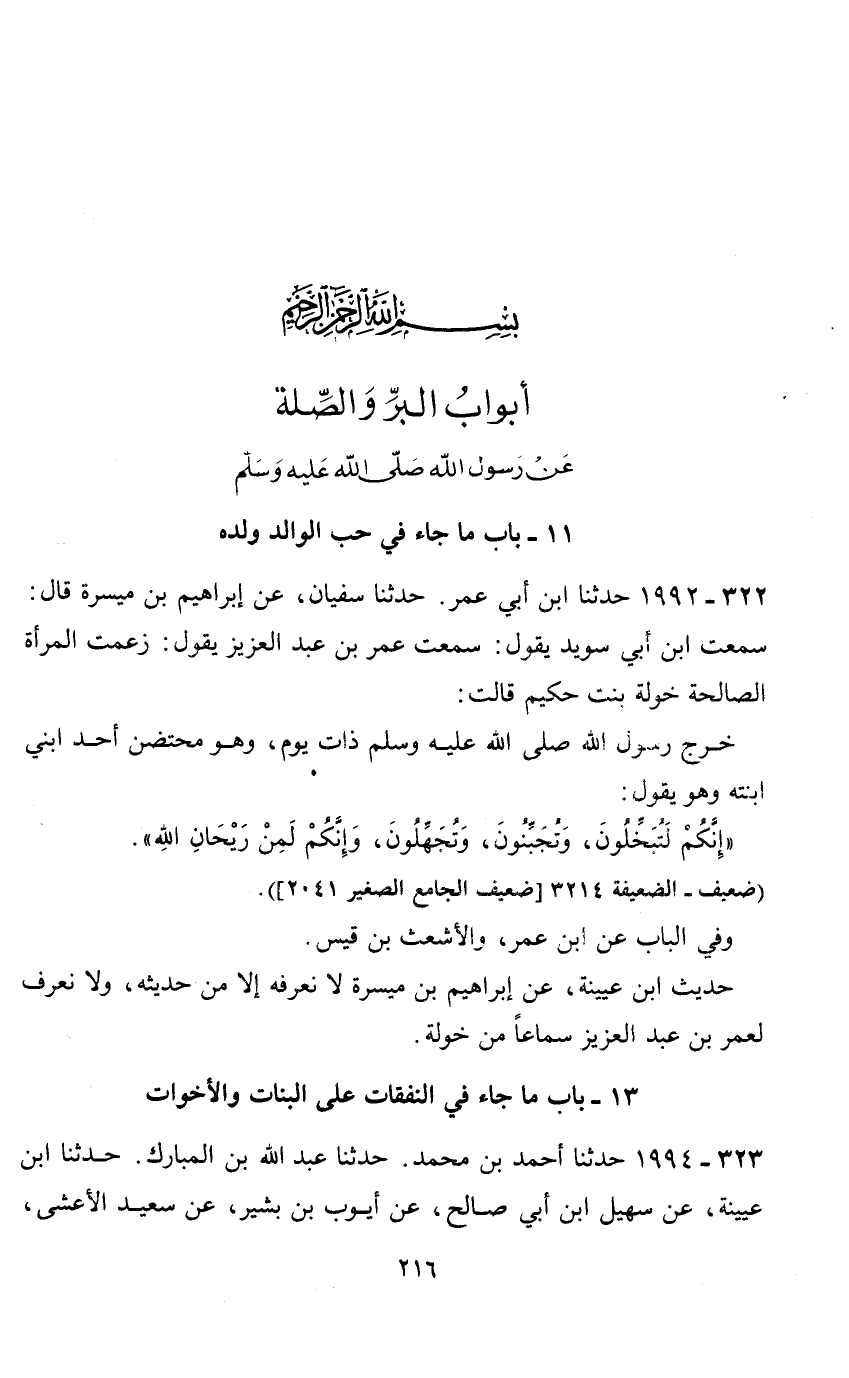 بسم الله الرحمن الرحيم
أبوابُ البرِّ وَالصِّلة
عَنْ رَسول الله صَلّى الله عَليه وَسَلّم
١١ - باب ما جاء في حب الوالد ولده
٣٢٢ - ١٩٩٢ حدثنا ابن أبي عمر. حدثنا سفيان، عن إبراهيم بن ميسرة قال:
سمعت ابن أبي سويد يقول: سمعت عمر بن عبد العزيز يقول: زعمت المرأة
الصالحة خولة بنت حكيم قالت:
خرج رسول الله صلى الله عليه وسلم ذات يوم، وهو محتضن أحد ابني
ابنته وهو يقول:
«إِنَّكُمْ لَتُبَخِّلُونَ، وَتُجَبِّنُونَ، وَتُجَهِّلُونَ، وَإِنَّكُمْ لَمِنْ رَيْحَانِ اللهِ».
(ضعيف - الضعيفة ٣٢١٤ [ضعيف الجامع الصغير ٢٠٤١]).
وفي الباب عن ابن عمر، والأشعث بن قيس.
حديث ابن عيينة، عن إبراهيم بن ميسرة لا نعرفه إلا من حديثه، ولا نعرف
لعمر بن عبد العزيز سماعاً من خولة.
١٣ - باب ما جاء في النفقات على البنات والأخوات
٣٢٣ - ١٩٩٤ حدثنا أحمد بن محمد. حدثنا عبد الله بن المبارك. حدثنا ابن
عيينة، عن سهيل ابن أبي صالح، عن أيوب بن بشير، عن سعيد الأعشى،
٢١٦